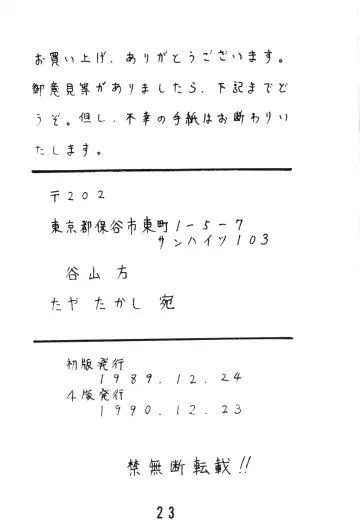 お買い上げ、ありがとうございます。
御意見等がありましたら、下記までど
うぞ。但し、不幸の手紙はお断わりい
たします。
〒202
東京都保谷市東町1-5-7
サンハイツ103
谷山方
たやたかし 宛
初版発行
1989.12.24
4版発行
1990.12.23
禁無断転載!!
23